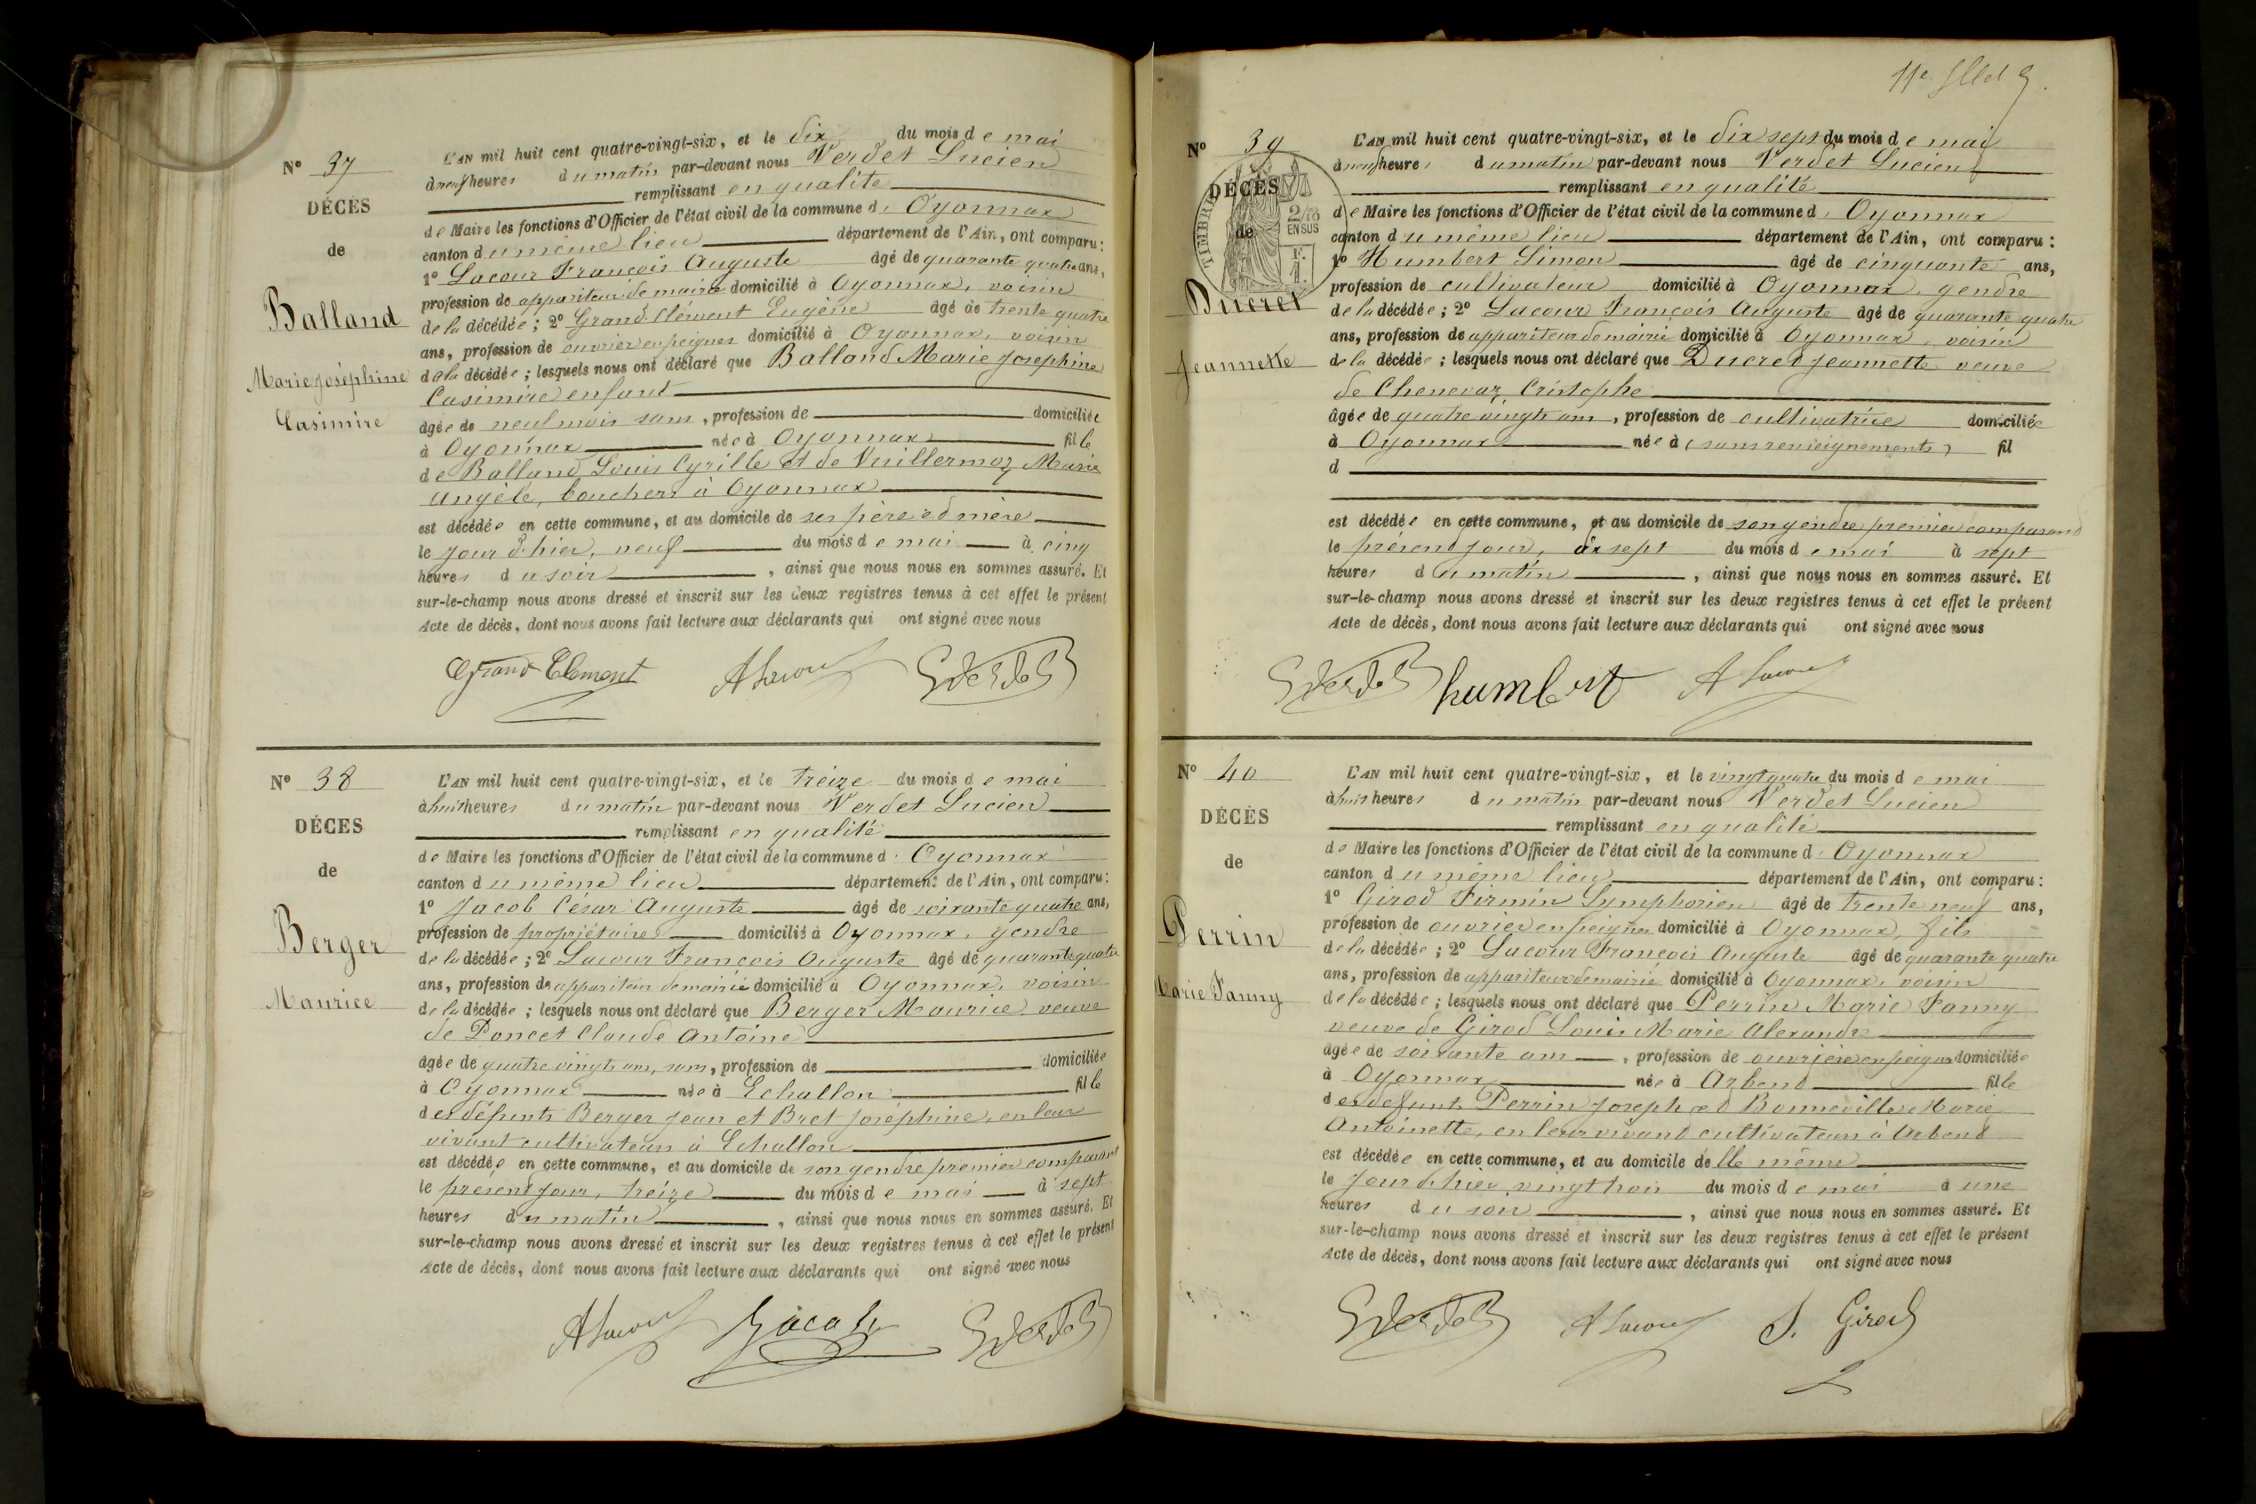 N° 37
DÉCÈS
de
Balland
Marie Joséphine
Casimire
L'AN mil huit cent quatre-vingt-six, et le dix du mois de mai
à neuf heures du matin par-devant nous Verdet Lucien
remplissant en qualité
de Maire les fonctions d'Officier de l'état civil de la commune d' Oyonnax
canton du même lieu département de l'Ain, ont comparu :
1° Lacour François Auguste âgé de quarante quatre ans,
profession de appariteur de mairie domicilié à Oyonnax, voisin
de la décédée ; 2° Grand Clément Eugène âgé de trente quatre
ans, profession de ouvrier en peignes domicilié à Oyonnax, voisin
de la décédée ; lesquels nous ont déclaré que Balland Marie Joséphine
Casimire enfant
âgée de neuf mois sans, profession de domiciliée
à Oyonnax née à Oyonnax fille
de Balland Louis Cyrille et de Vuillermoz Marie
Angèle, bouchers à Oyonnax
est décédée en cette commune, et au domicile de ses père et mère
le jour d'hier, neuf du mois de mai à cinq
heures du soir, ainsi que nous nous en sommes assuré. Et
sur-le-champ nous avons dressé et inscrit sur les deux registres tenus à cet effet le présent
Acte de décès, dont nous avons fait lecture aux déclarants qui ont signé avec nous
Grand Clement ALacour Verdet
N° 38
DÉCES
de
Berger
Maurice
L'AN mil huit cent quatre-vingt-six, et le treize du mois de mai
à huit heures du matin par-devant nous Verdet Lucien
remplissant en qualité
de Maire les fonctions d'Officier de l'état civil de la commune d' Oyonnax
canton du même lieu département de l'Ain, ont comparu :
1° Jacob César Auguste âgé de soixante quatre ans,
profession de propriétaire domicilié à Oyonnax, gendre
de la décédée ; 2° Lacour François Auguste âgé de quarante quatre
ans, profession de appariteur de mairie domicilié à Oyonnax, voisin
de la décédée ; lesquels nous ont déclaré que Berger Maurice, veuve
de Poncet Claude Antoine
âgée de quatre vingts ans, sans, profession de domiciliée
à Oyonnax née à Echallon fille
des défunts Berger Jean et Bret Joséphine, en leur
vivant cultivateurs à Echallon
est décédée en cette commune, et au domicile de son gendre premier comparant
le présent jour, treize du mois de mai à sept
heures du matin, ainsi que nous nous en sommes assuré. Et
sur-le-champ nous avons dressé et inscrit sur les deux registres tenus à cet effet le présent
Acte de décès, dont nous avons fait lecture aux déclarants qui ont signé avec nous
ALacour Jacob Verdet
11e
N° 39
DÉCÈS
de
TIMBRE
2/10
EN SUS
F.
1
Ducret
Jeannette
L'AN mil huit cent quatre-vingt-six, et le dix sept du mois de mai
à neuf heures du matin par-devant nous Verdet Lucien
remplissant en qualité
de Maire les fonctions d'Officier de l'état civil de la commune d' Oyonnax
canton du même lieu département de l'Ain, ont comparu :
1° Humbert Simon âgé de cinquante ans,
profession de cultivateur domicilié à Oyonnax, gendre
de la décédée ; 2° Lacour François Auguste âgé de quarante quatre
ans, profession de appariteur de mairie domicilié à Oyonnax, voisin
de la décédée ; lesquels nous ont déclaré que Ducret Jeannette veuve
de Chenevaz Cristophe
âgée de quatre vingts ans, profession de cultivatrice domiciliée
à Oyonnax née à (sans renseignements) fil
d
est décédée en cette commune, et au domicile de son gendre premier comparant
le présent jour, dix sept du mois de mai à sept
heures du matin, ainsi que nous nous en sommes assuré. Et
sur-le-champ nous avons dressé et inscrit sur les deux registres tenus à cet effet le présent
Acte de décès, dont nous avons fait lecture aux déclarants qui ont signé avec nous
Verdet humbert A Lacour
N° 40
DÉCÈS
de
Perrin
Marie Fanny
L'AN mil huit cent quatre-vingt-six, et le vingt quatre du mois de mai
à huit heures du matin par-devant nous Verdet Lucien
remplissant en qualité
de Maire les fonctions d'Officier de l'état civil de la commune d' Oyonnax
canton du même lieu département de l'Ain, ont comparu :
1° Girod Firmin Symphorien âgé de trente neuf ans,
profession de ouvrier en peignes domicilié à Oyonnax, fils
de la décédée ; 2° Lacour François Auguste âgé de quarante quatre
ans, profession de appariteur de mairie domicilié à Oyonnax, voisin
de la décédée ; lesquels nous ont déclaré que Perrin Marie Fanny
veuve de Girod Louis Marie Alexandre
âgée de soixante ans, profession de ouvrière en peignes domiciliée
à Oyonnax née à Arbend fille
des defunts Perrin Joseph et Bonneville Marie
Antoinette, en leur vivant cultivateurs à Arbend
est décédée en cette commune, et au domicile delle même
le jour d'hier vingt trois du mois de mai à une
heures du soir, ainsi que nous nous en sommes assuré. Et
sur-le-champ nous avons dressé et inscrit sur les deux registres tenus à cet effet le présent
Acte de décès, dont nous avons fait lecture aux déclarants qui ont signé avec nous
Verdet A Lacour S. Girod